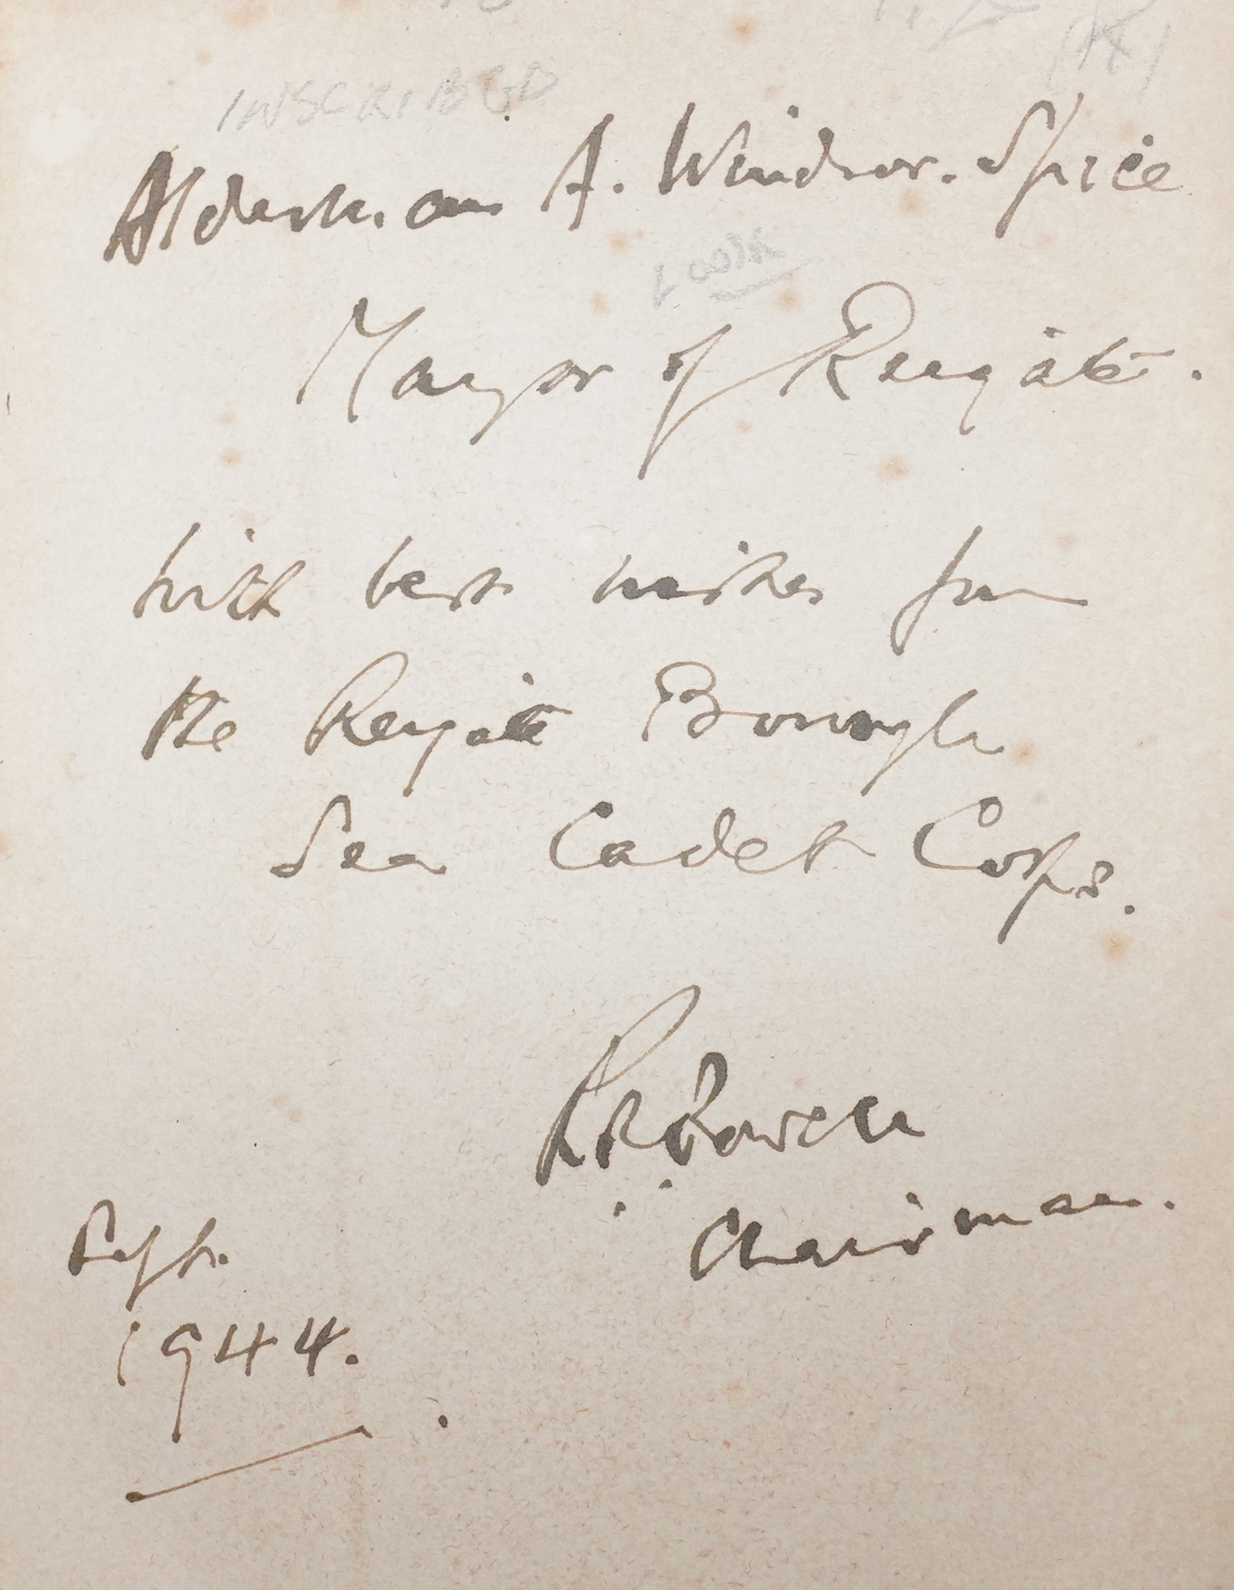 INSCRIBED
Alderman A. Windsor-Spice
LOOK
Mayor of Reigate.
with best wishes from
the Reigate Borough
Sea Cadet Corps.
Chairman.
Sept.
1944.